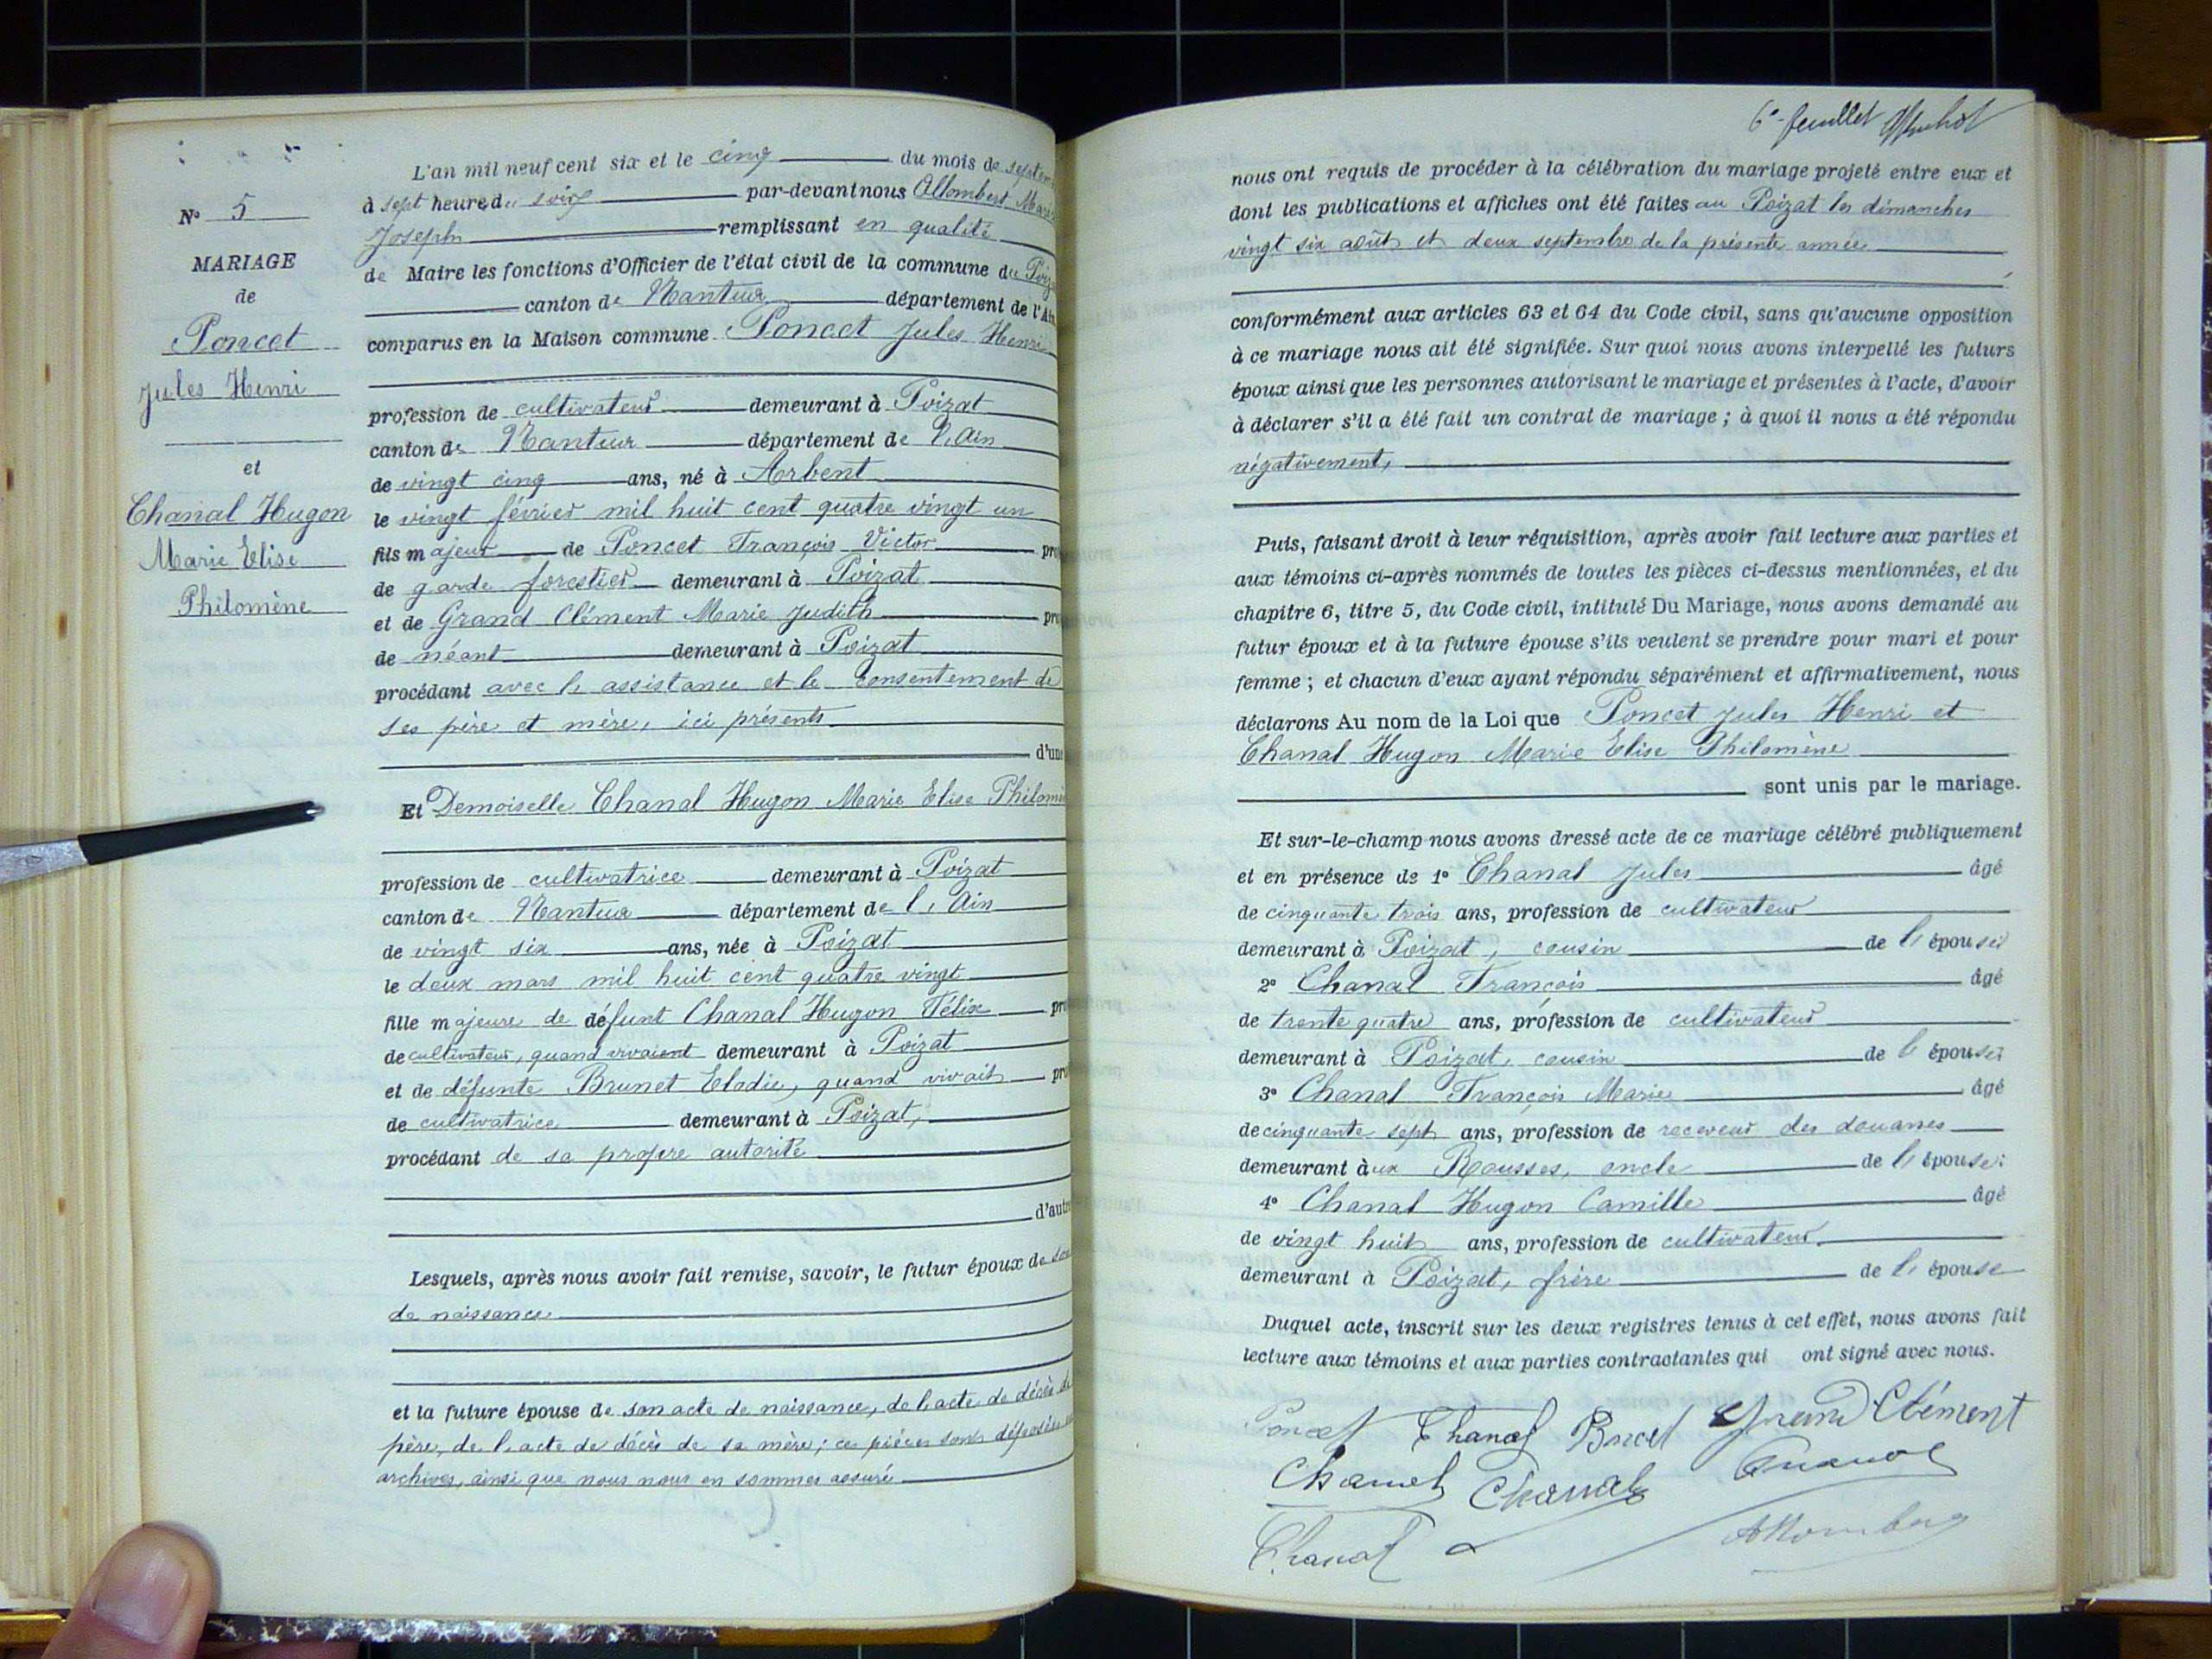 N° 5
MARIAGE
de
Poncet
Jules Henri
et
Chanal Hugon
Marie Elise
Philomène
L'an mil neuf cent six et le cinq du mois de septem
à sept heures du soir par-devant nous Allombert Marie
Joseph remplissant en qualité
de Maire les fonctions d'Officier de l'état civil de la commune du Poiz
canton de Nantua département de l'Ain
comparus en la Maison commune Poncet Jules Henri
profession de cultivateur demeurant à Poizat
canton de Nantua département de l'Ain
de vingt cinq ans, né à Arbent
le vingt février mil huit cent quatre vingt un
fils majeur de Poncet François Victor pro
de garde forestier demeurant à Poizat
et de Grand Clément Marie Judith pro
de néant demeurant à Poizat
procédant avec l'assistance et le consentement de
ses père et mère, ici présents
d'une
Et Demoiselle Chanal Hugon Marie Elise Philomè
profession de cultivatrice demeurant à Poizat
canton de Nantua département de l'Ain
de vingt six ans, née à Poizat
le deux mars mil huit cent quatre vingt
fille majeure de défunt Chanal Hugon Félix pro
de cultivateur, quand vivaient demeurant à Poizat
et de défunte Brunet Elodie, quand vivait pro
de cultivatrice demeurant à Poizat,
procédant de sa propre autorité
d'autre
Lesquels, après nous avoir fait remise, savoir, le futur époux de son
de naissance
et la future épouse de son acte de naissance, de l'acte de décès de
père, de l'acte de décès de sa mère; ces pièces sont déposées
archives, ainsi que nous nous en sommes assuré
6e feuillet
nous ont requis de procéder à la célébration du mariage projeté entre eux et
dont les publications et affiches ont été faites au Poizat les dimanches
vingt six août et deux septembre de la présente année
conformément aux articles 63 et 64 du Code civil, sans qu'aucune opposition
à ce mariage nous ait été signifiée. Sur quoi nous avons interpellé les futurs
époux ainsi que les personnes autorisant le mariage et présentes à l'acte, d'avoir
à déclarer s'il a été fait un contrat de mariage ; à quoi il nous a été répondu
négativement,
Puis, faisant droit à leur réquisition, après avoir fait lecture aux parties et
aux témoins ci-après nommés de toutes les pièces ci-dessus mentionnées, et du
chapitre 6, titre 5, du Code civil, intitulé Du Mariage, nous avons demandé au
futur époux et à la future épouse s'ils veulent se prendre pour mari et pour
femme ; et chacun d'eux ayant répondu séparément et affirmativement, nous
déclarons Au nom de la Loi que Poncet Jules Henri et
Chanal Hugon Marie Elise Philomène
sont unis par le mariage.
Et sur-le-champ nous avons dressé acte de ce mariage célébré publiquement
et en présence de 1° Chanal Jules âgé
de cinquante trois ans, profession de cultivateur
demeurant à Poizat, cousin de l'épouse
2° Chanal François âgé
de trente quatre ans, profession de cultivateur
demeurant à Poizat, cousin de l'épouse;
3° Chanal François Marie âgé
de cinquante sept ans, profession de receveur des douanes
demeurant aux Rousses, oncle de l'épouse;
4° Chanal Hugon Camille âgé
de vingt huit ans, profession de cultivateur.
demeurant à Poizat, frère de l'épouse
Duquel acte, inscrit sur les deux registres tenus à cet effet, nous avons fait
lecture aux témoins et aux parties contractantes qui ont signé avec nous.
Poncet Chanal Poncet Grand Clément
Chanal Chanal Chanal
Chanal Allombert